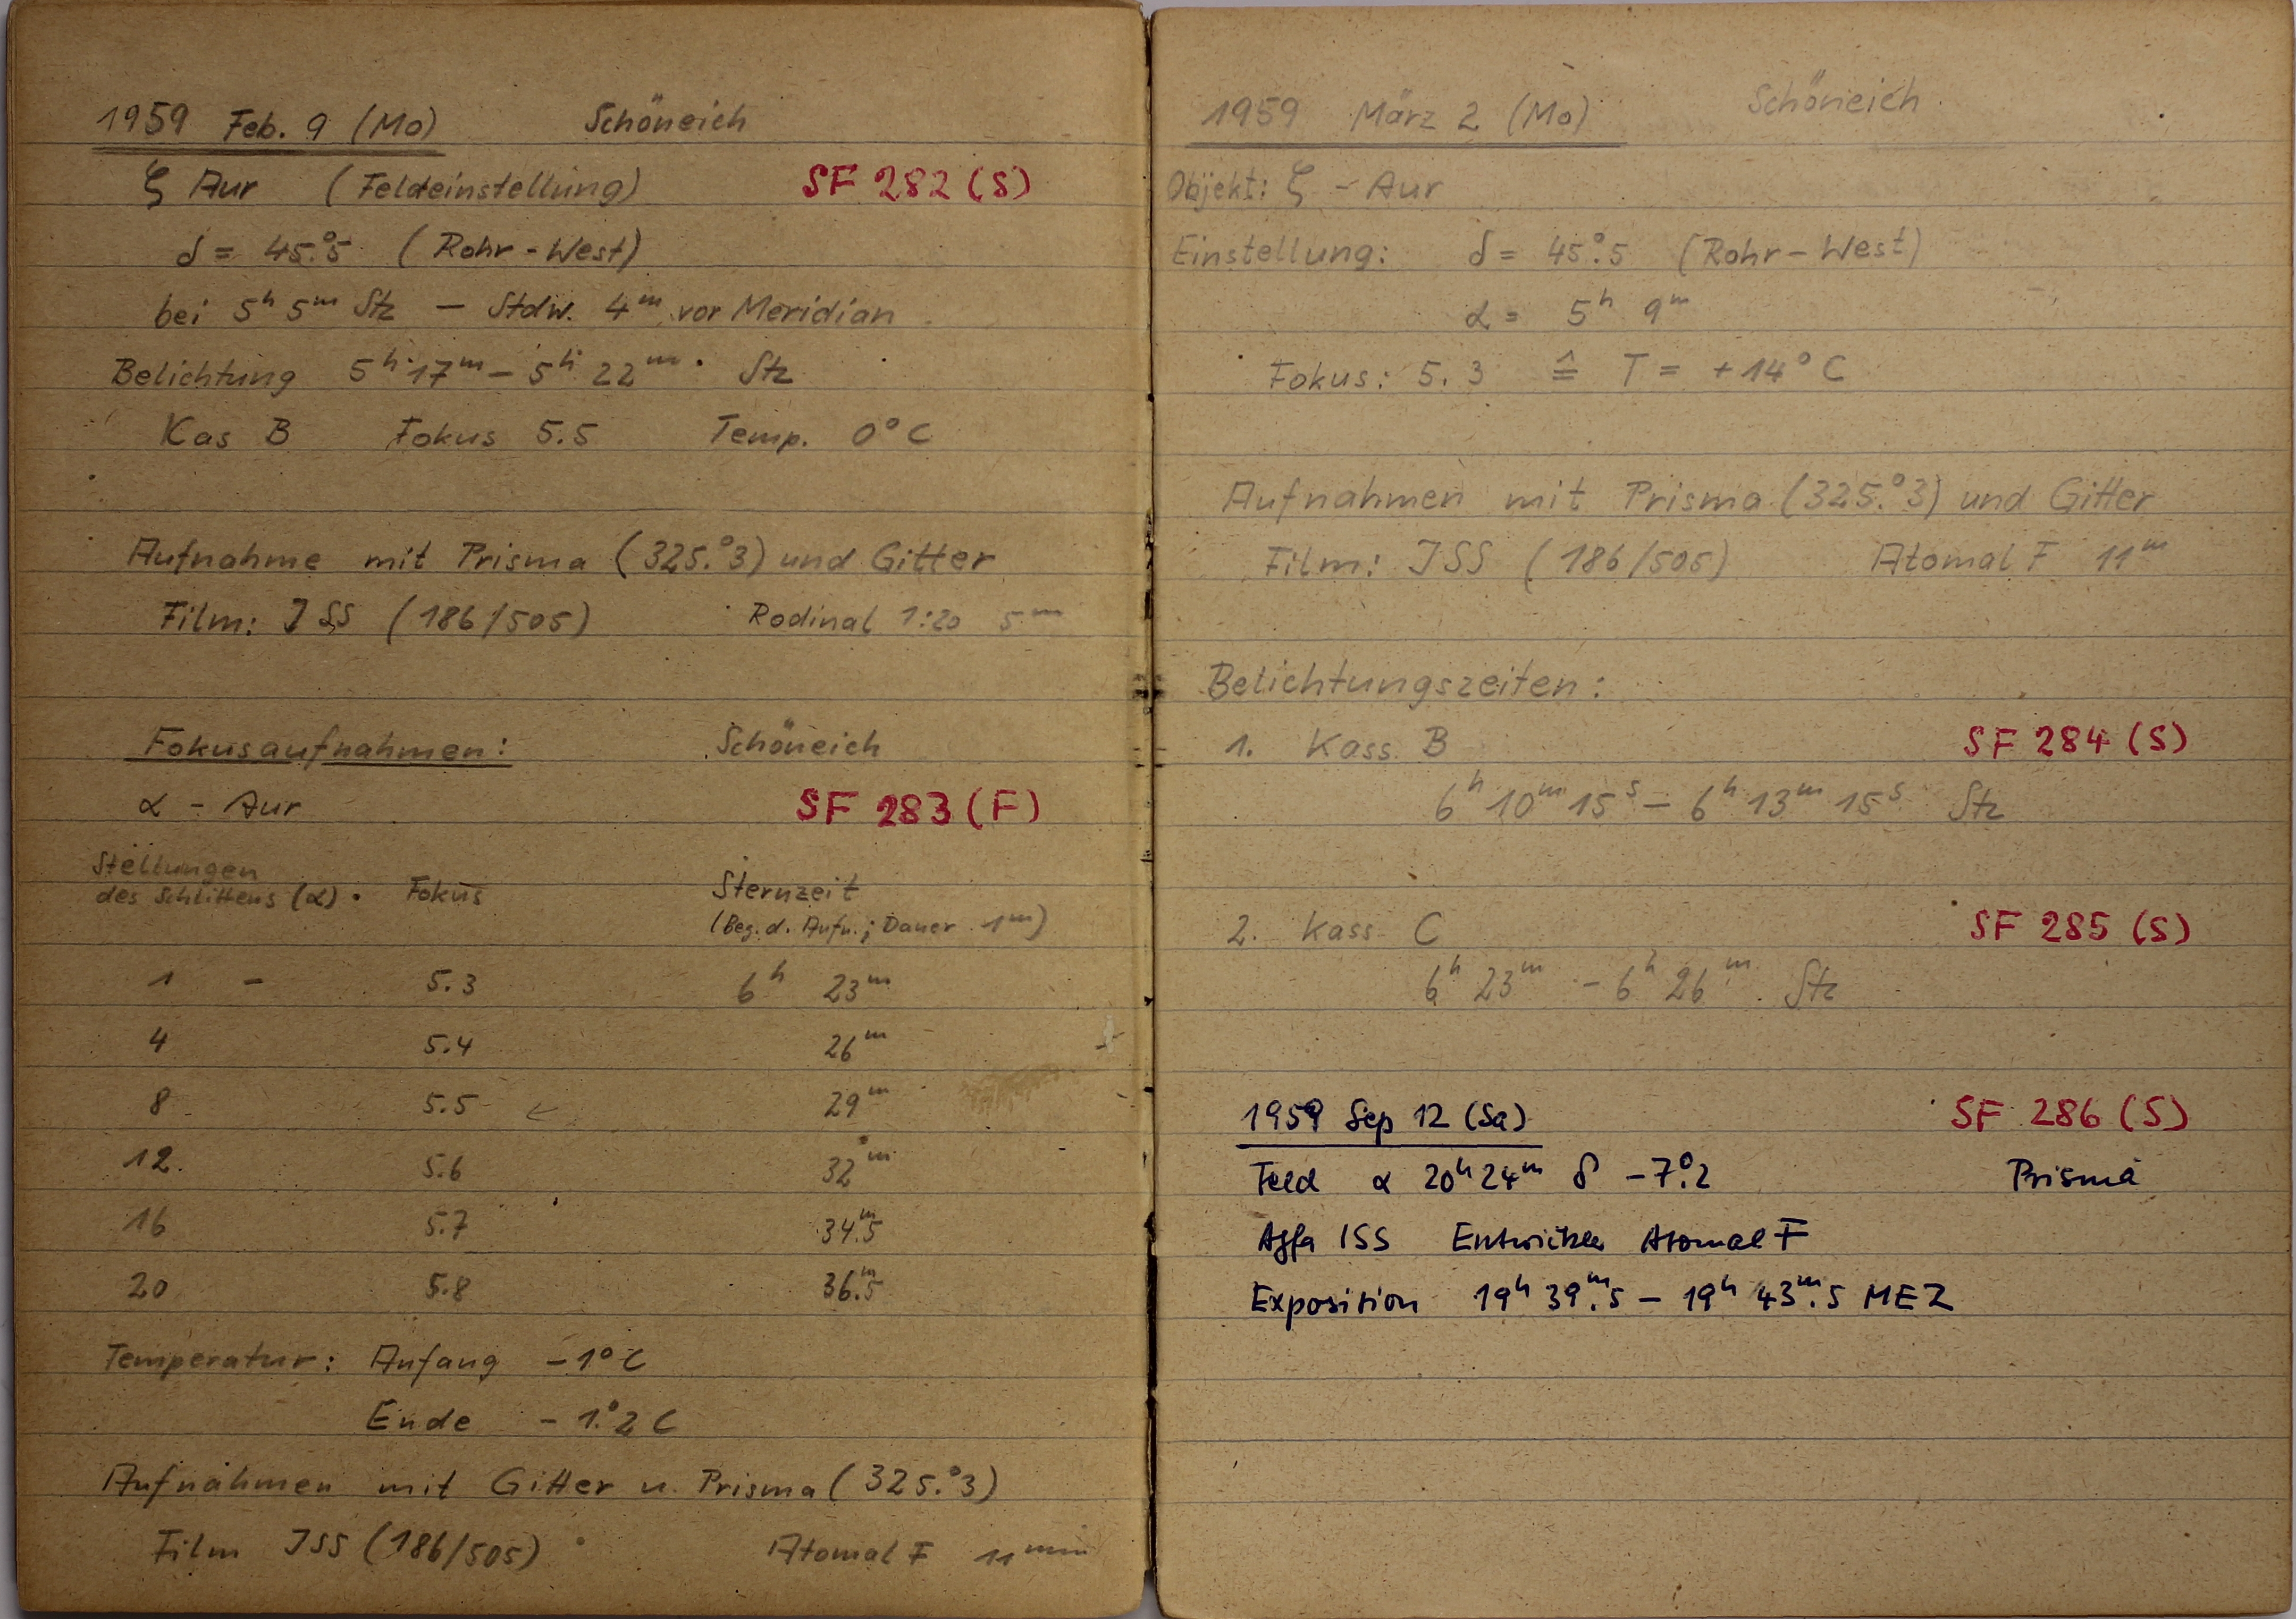 1959 Feb. 9 (Mo) Schöneich
ζ Aur (Feldeinstellung) SF 282 (S)
δ = 45.°5 (Rohr-West)
bei 5ʰ 5ᵐ Stz — Stdw. 4ᵐ vor Meridian
Belichtung 5ʰ 17ᵐ – 5ʰ 22ᵐ Stz
Kas B Fokus 5.5 Temp. 0°C
Aufnahme mit Prisma (325.°3) und Gitter
Film: JSS (186/505) Rodinal 1:20 5ᵐ
Fokusaufnahmen: Schöneich
α - Aur SF 283 (F)
Stellungen
des Schlittens (α) Fokus Sternzeit
(Beg. d. Aufn.; Dauer 1ᵐ)
1 – 5.3 6ʰ 23ᵐ
4 5.4 26ᵐ
8 5.5 ← 29ᵐ
12. 5.6 32ᵐ
16 5.7 34.ᵐ5
20 5.8 36.ᵐ5
Temperatur: Anfang -1°C
Ende -1.°2 C
Aufnahmen mit Gitter u. Prisma (325.°3)
Film JSS (186/505) Atomal F 11 min
1959 März 2 (Mo) Schöneich
Objekt: ζ - Aur
Einstellung: δ = 45.°5 (Rohr-West)
α = 5ʰ 9ᵐ
Fokus: 5.3 ≙ T = +14°C
Aufnahmen mit Prisma (325.°3) und Gitter
Film: JSS (186/505) Atomal F 11ᵐ
Belichtungszeiten:
1. Kass. B SF 284 (S)
6ʰ 10ᵐ 15ˢ – 6ʰ 13ᵐ 15ˢ Stz
2. Kass. C SF 285 (S)
6ʰ 23ᵐ – 6ʰ 26ᵐ Stz
1959 Sep 12 (Sa) SF 286 (S)
Feld α 20ʰ24ᵐ δ -7.°2 Prisma
Agfa ISS Entwickler Atomal F
Exposition 19ʰ 39.ᵐ5 – 19ʰ 43.ᵐ5 MEZ